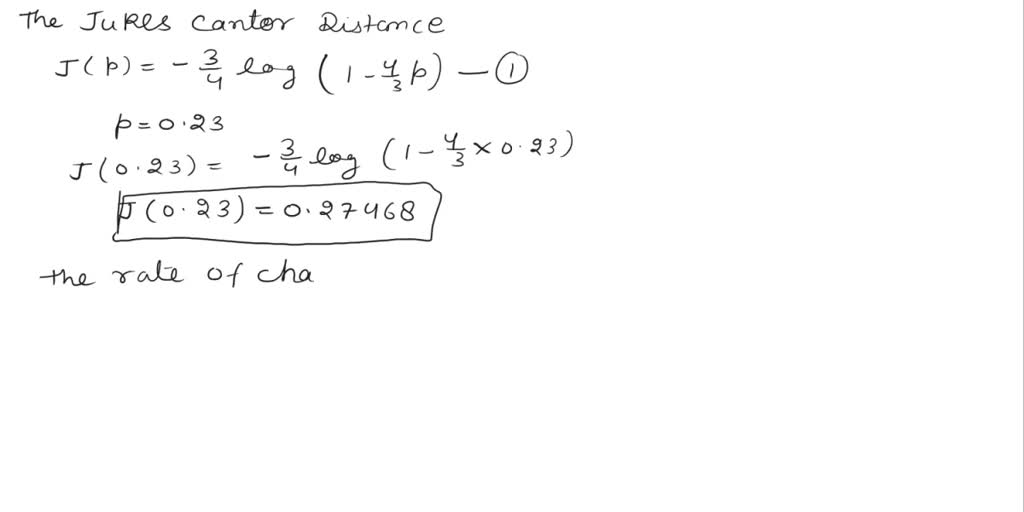 The Jukes Cantor Distance
J(p) = - 3/4 log (1 - 4/3 p) — ①
p = 0.23
J(0.23) = - 3/4 log (1 - 4/3 × 0.23)
J(0.23) = 0.27468
the rate of cha